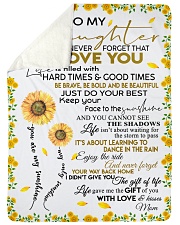 TO MY
Daughter
NEVER FORGET THAT
LOVE YOU
Life is filled with
HARD TIMES & GOOD TIMES
BE BRAVE, BE BOLD AND BE BEAUTIFUL
JUST DO YOUR BEST
Keep your
Face to the sunshine
AND YOU CANNOT SEE
THE SHADOWS
Life isn't about waiting
for the storm to pass
IT'S ABOUT LEARNING TO
DANCE IN THE RAIN
Enjoy the ride
And never forget
YOUR WAY BACK HOME
I DIDN'T GIVE YOU
The gift of life
Life gave me the GIFT of you
WITH LOVE & kisses
Mom
you are my sunshine
my only sunshine